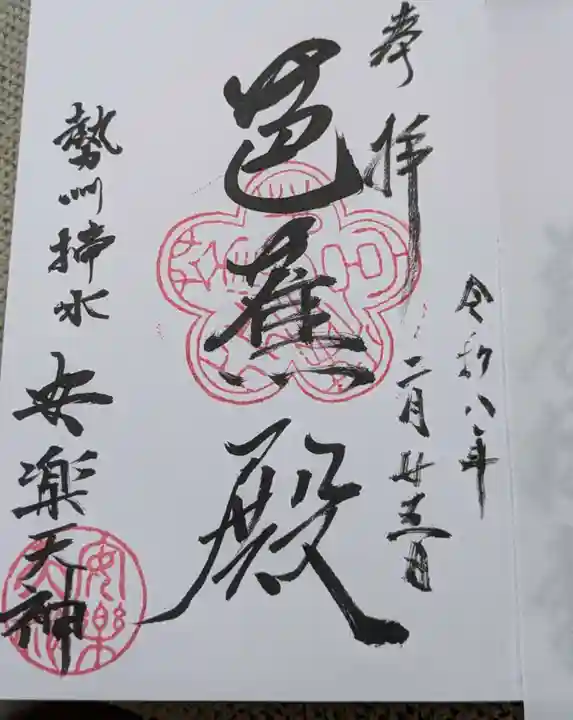 奉拝
令和八年
二月廿三日
芭蕉殿
勢州挿水
安楽天神